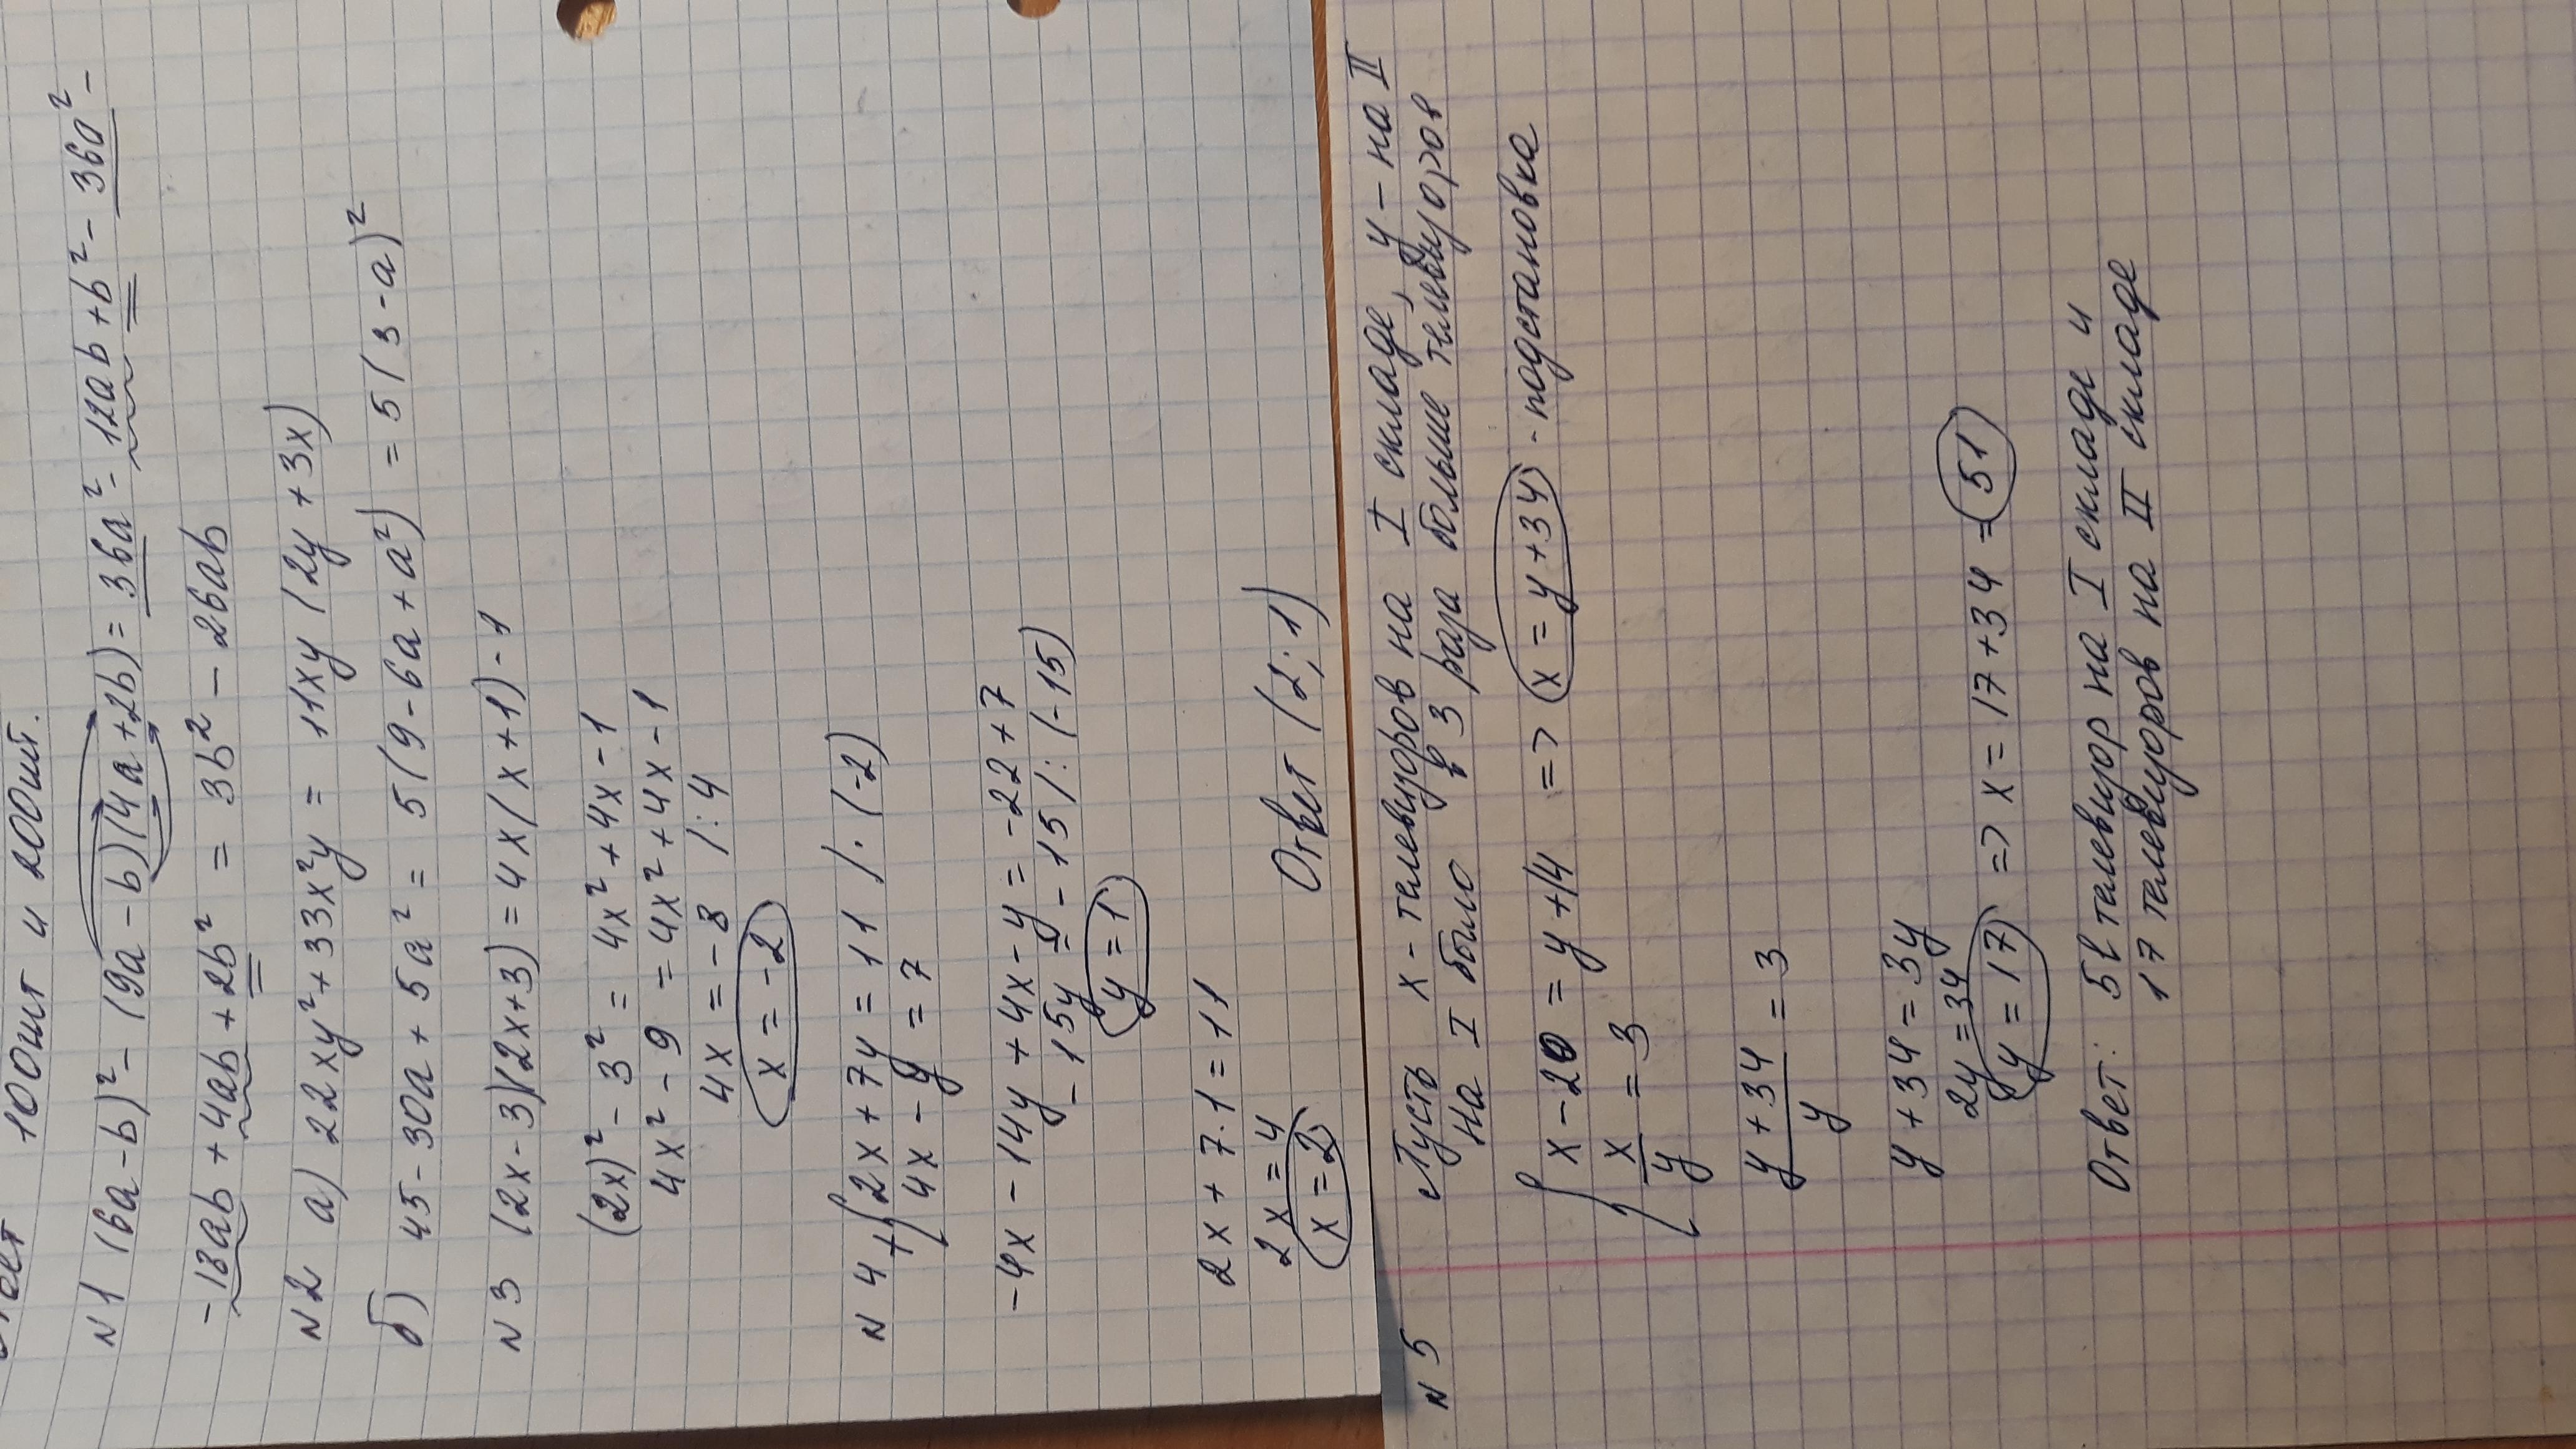 100шт и 200шт.
N1 (6a-b)² - (9a-b)(4a+2b) = 36a² - 12ab + b² - 36a² -
-18ab + 4ab + 2b² = 3b² - 26ab
N2 а) 22xy² + 33x²y = 11xy (2y + 3x)
б) 45 - 30a + 5a² = 5(9 - 6a + a²) = 5(3 - a)²
N3 (2x-3)(2x+3) = 4x(x+1) - 1
(2x)² - 3² = 4x² + 4x - 1
4x² - 9 = 4x² + 4x - 1
4x = -8 /:4
x = -2
N4 + { 2x + 7y = 11 /·(-2)
4x - y = 7
-4x - 14y + 4x - y = -22 + 7
-15y = -15 /:(-15)
y = 1
2x + 7·1 = 11
2x = 4
x = 2
Ответ (2; 1)
N5 Пусть x - телевизоров на I складе, y - на II
На I было в 3 раза больше телевизоров
{ x - 20 = y + 14 => x = y + 34 - подстановка
x/y = 3
(y + 34)/y = 3
y + 34 = 3y
2y = 34
y = 17 => x = 17 + 34 = 51
Ответ: 51 телевизор на I складе и
17 телевизоров на II складе